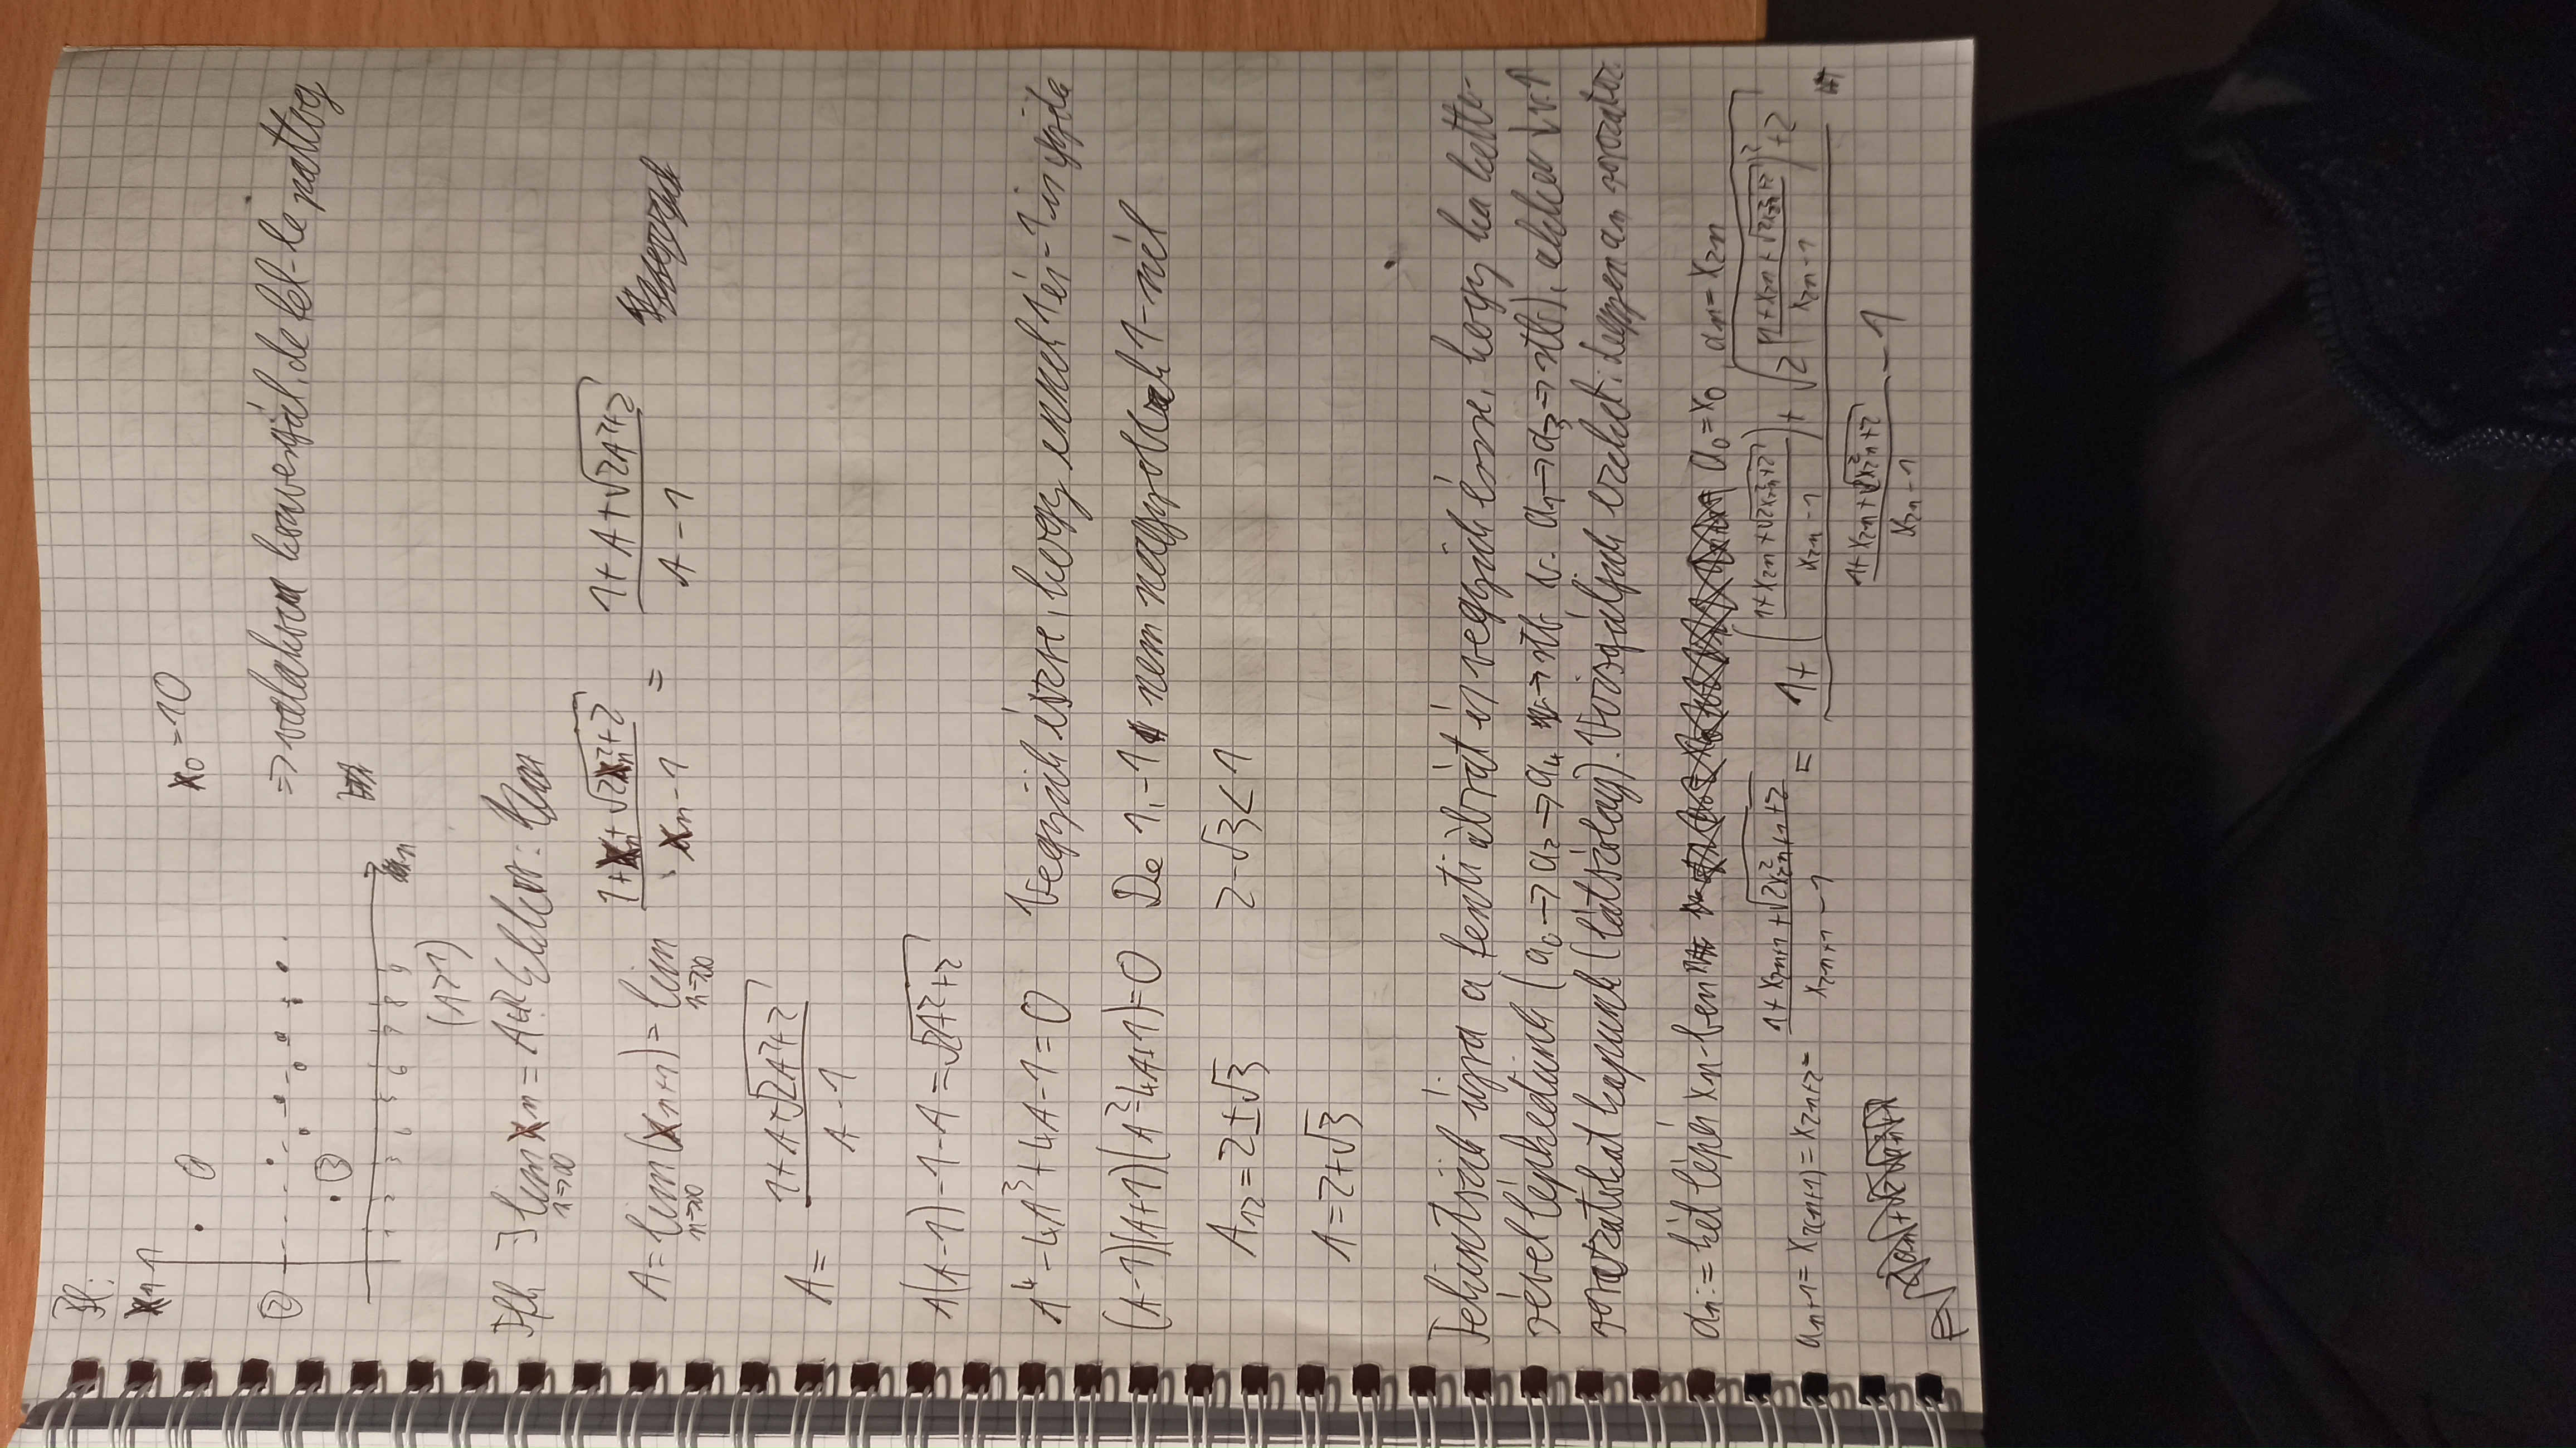 Pl:
x1
1
x0 = 10
2
⇒ valahova konvergál, de fel-le pattog
3
1 2 3 4 5 6 7 8 9
n
(A>1)
Tfh ∃ lim n→∞ xn = A∈R Ekkor:
A = lim n→∞ (xn+1) = lim n→∞ (1+xn+√(2xn²+2))/(xn-1) = (1+A+√(2A²+2))/(A-1)
A = (1+A+√(2A²+2))/(A-1)
A(A-1)-1-A = √(2A²+2)
A⁴-4A³+4A-1=0 Vegyük észre, hogy ennek 1 és -1 is gyöke
(A-1)(A+1)(A²-4A+1)=0 De 1, -1 nem nagyobbak 1-nél
A12 = 2±√3 2-√3<1
A = 2+√3
Tekintsük újra a fenti ábrát és vegyük észre, hogy ha kette-
sével lépkedünk (a0→a2→a4→stb v. a1→a3→stb), akkor ↓ v. ↑
sorozatokat kapunk (látszólag). Vizsgáljuk ezeket: Legyen an sorozat
an := két lépés xn-ben a0=x0 an=x2n
an+1 = x2(n+1) = x2n+2 = (1+x2n+1+√(2x²2n+1+2))/(x2n+1-1) = (1+((1+x2n+√(2x²2n+2))/(x2n-1))+√(2((1+x2n+√(2x²2n+2))/(x2n-1))²+2))/((1+x2n+√(2x²2n+2))/(x2n-1)-1)